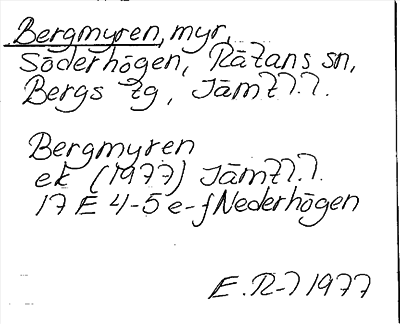 Bergmyren, myr,
Söderhögen, Rätans sn,
Bergs tg, Jämtl.
Bergmyren
ek (1977) Jämtl.
17 E 4-5 e-f Nederhögen
E. R-l 1977